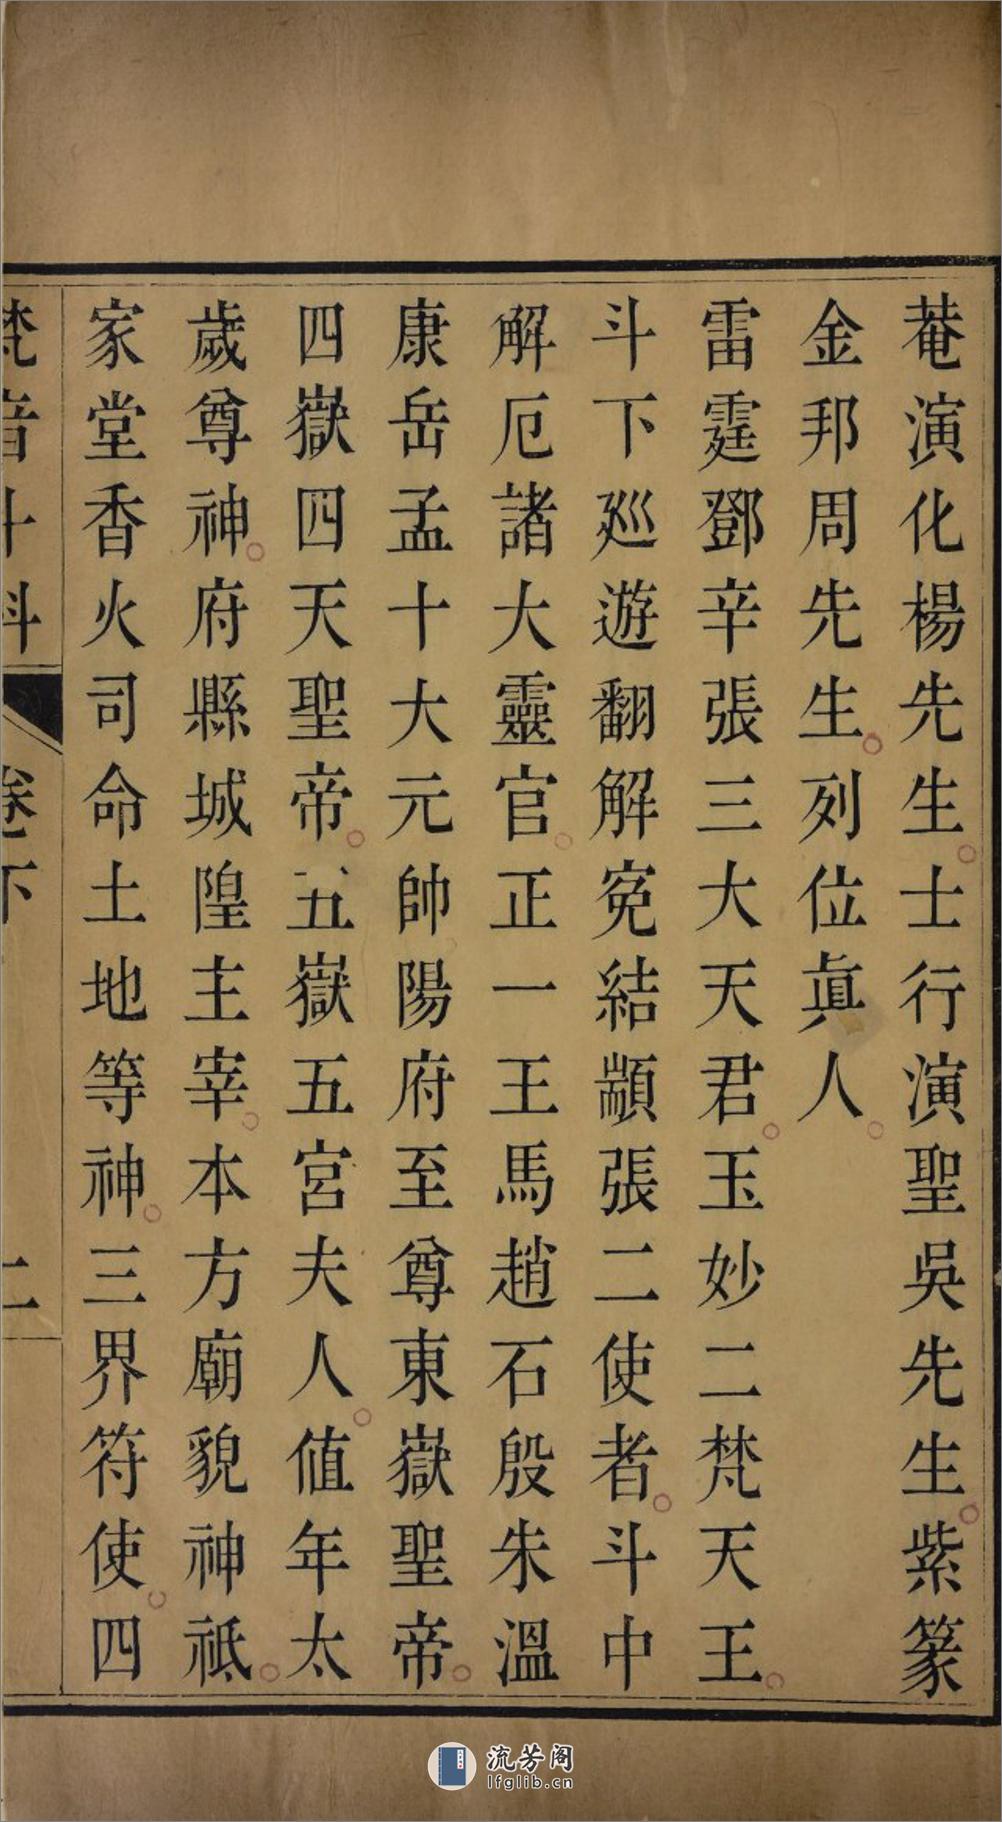 菴演化楊先生士行演聖吳先生紫篆
金邦周先生列位眞人
雷霆鄧辛張三大天君玉妙二梵天王
斗下廵遊翻解寃結顓張二使者斗中
解厄諸大靈官正一王馬趙石殷朱溫
康岳孟十大元帥陽府至尊東嶽聖帝
四嶽四天聖帝五嶽五宮夫人値年太
歲尊神府縣城隍主宰本方廟貌神祗
家堂香火司命土地等神三界符使四
梵音斗科 卷下 二
流芳阁
lfglib.cn